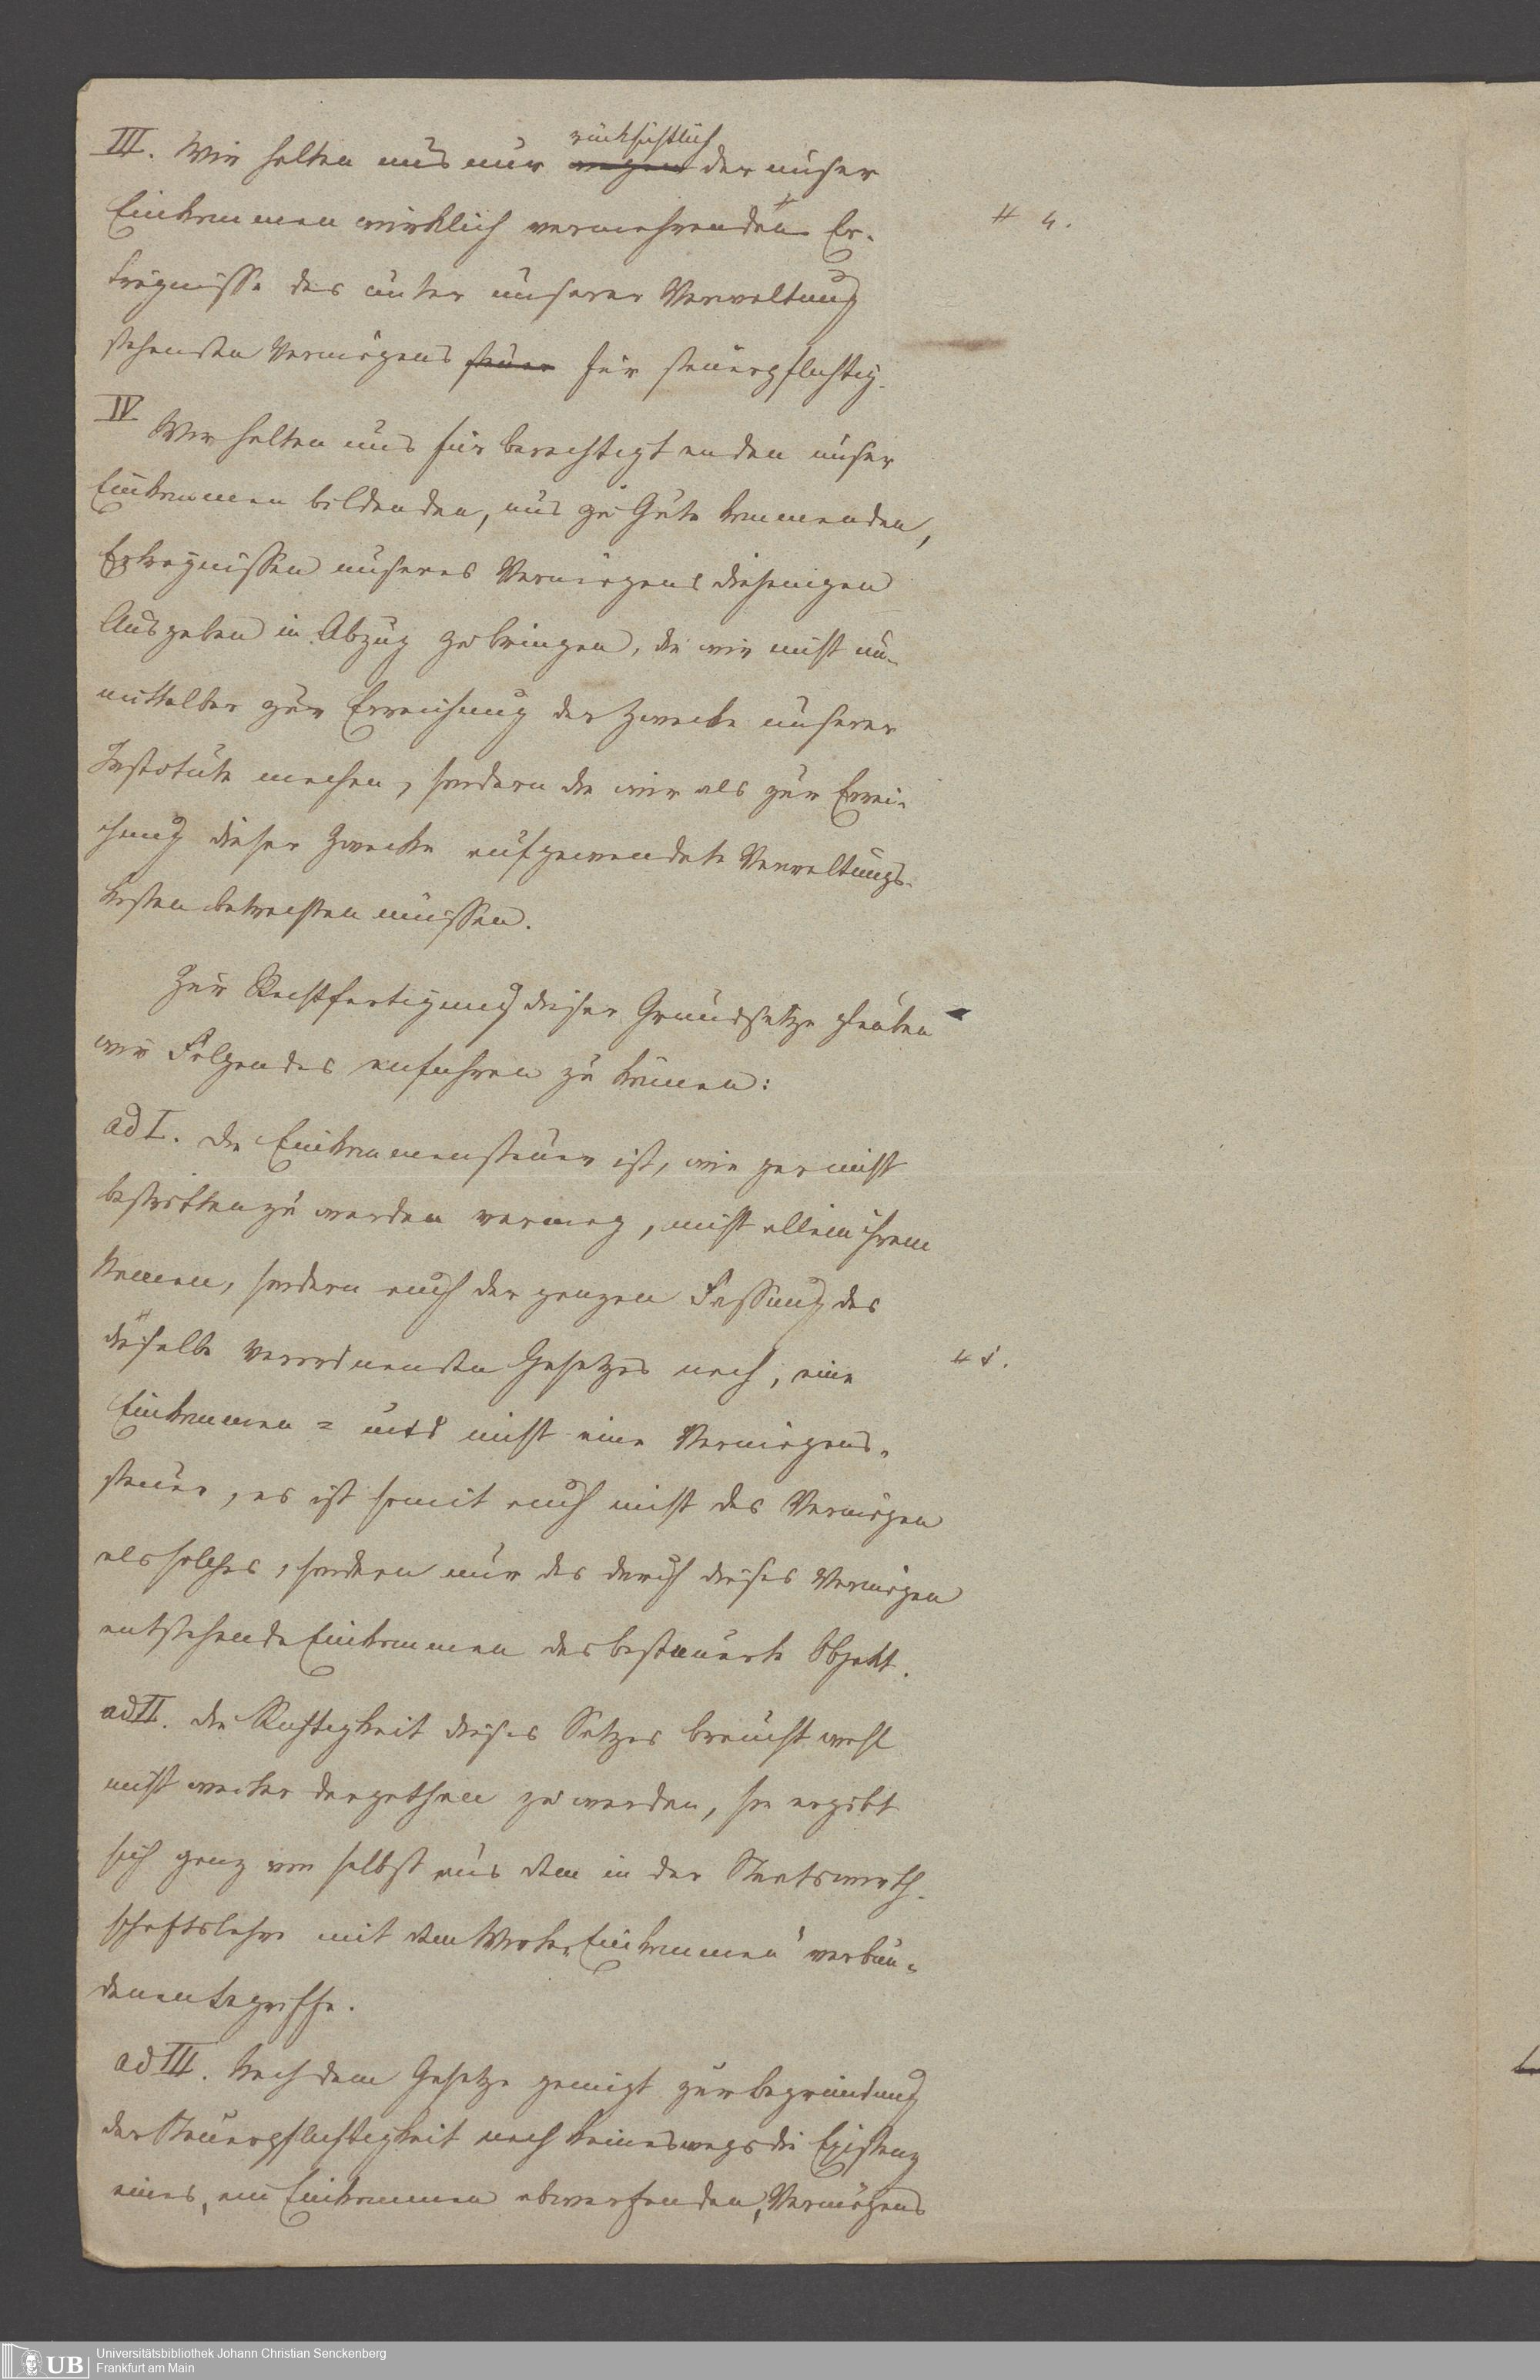 III. Wir halten uns nur rücksichtlich wegen der unser
Einkommen wirklich vermehrenden # Er-
# 4.
trägnisse des unter unserer Verwaltung
stehenden Vermögens steuer für steuerpflichtig.
IV
Wir halten uns für berechtigt an den unser
Einkommen bildenden, uns zu Gute kommenden,
Erträgnissen unseres Vermögens diejenigen
Ausgaben in Abzug zu bringen, die wir nicht un-
mittelbar zur Erreichung der Zwecke unserer
Institute machen, sondern die wir als zur Errei-
chung dieser Zwecke aufgewendete Verwaltungs-
kosten betrachten müssen.
Zur Rechtfertigung dieser Grundsätze glauben
wir Folgendes anführen zu können:
ad I. Die Einkommensteuer ist, wie gar nicht
bestritten zu werden vermag, nicht allein ihrem
Namen, sondern auch der ganzen Fassung des
dieselbe # verordnenden Gesetzes nach, eine
# 5.
Einkommen = und nicht eine Vermögens-
steuer, es ist somit auch nicht das Vermögen
als solches, sondern nur das durch dieses Vermögen
entstehende Einkommen das besteuerte Objekt.
ad II. Die Richtigkeit dieses Satzes braucht wohl
nicht weiter dargethan zu werden, sie ergibt
sich ganz von selbst aus dem in der Staatswirth-
schaftslehre mit dem Worte „Einkommen" verbun-
denen Begriffe.
ad III. Nach dem Gesetze genügt zur Begründung
der Steuerpflichtigkeit noch keineswegs die Existenz
eines, ein Einkommen abwerfenden, Vermögens
UB
Universitätsbibliothek Johann Christian Senckenberg
Frankfurt am Main